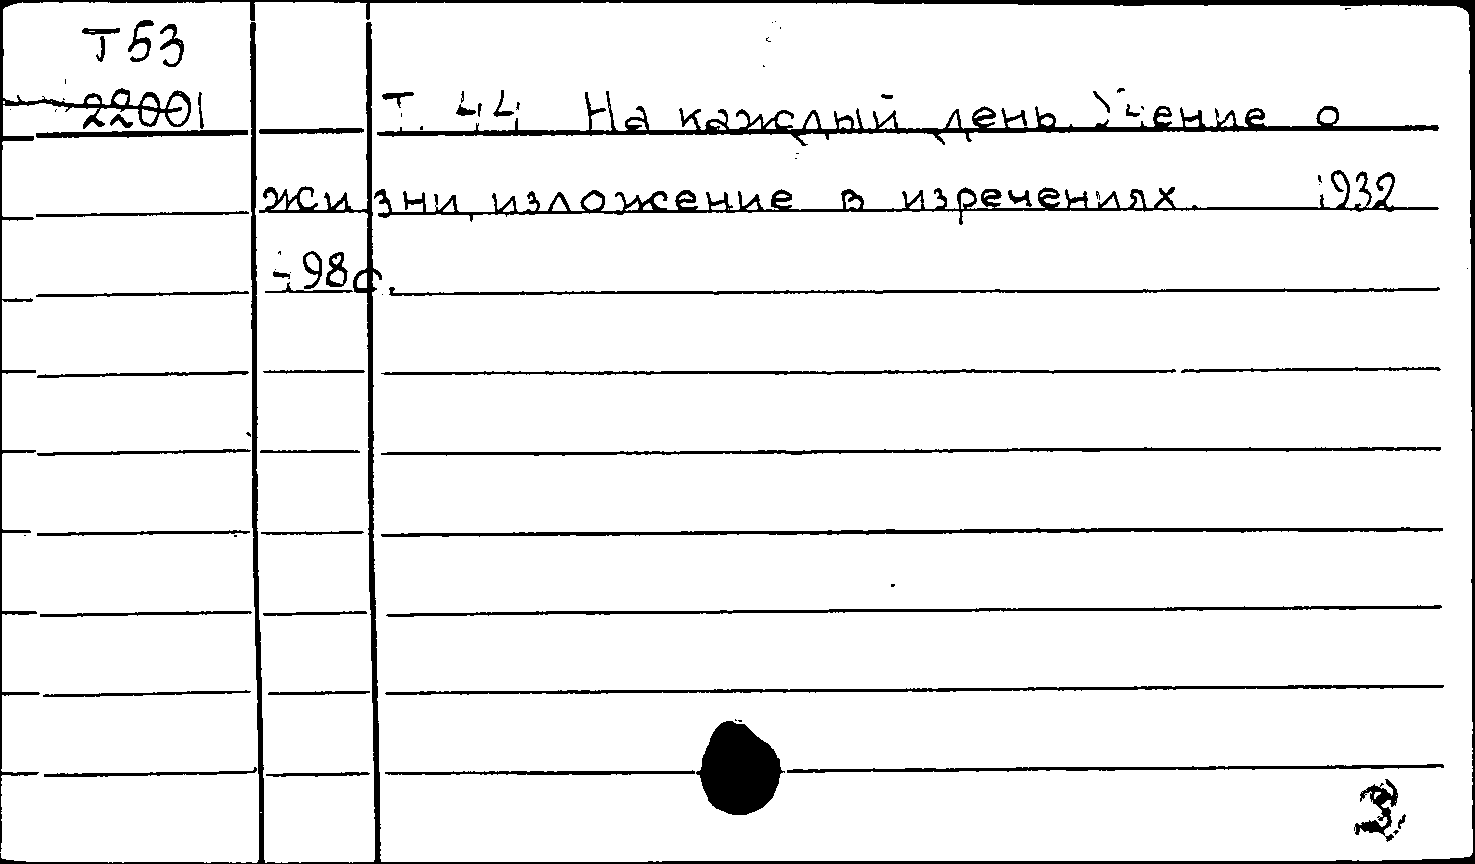 Т53
22001
Т. 44 На каждый день. Учение о
жизни, изложение в изречениях. 1932
498с.
3